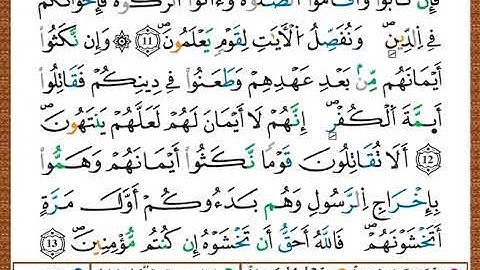 فَإِن تَابُوا۟ وَأَقَامُوا۟ ٱلصَّلَوٰةَ وَءَاتَوُا۟ ٱلزَّكَوٰةَ فَإِخْوَٰنُكُمْ
فِى ٱلدِّينِ ۗ وَنُفَصِّلُ ٱلْءَايَٰتِ لِقَوْمٍ يَعْلَمُونَ ۝11 ۞ وَإِن نَّكَثُوٓا۟
أَيْمَٰنَهُم مِّنۢ بَعْدِ عَهْدِهِمْ وَطَعَنُوا۟ فِى دِينِكُمْ فَقَٰتِلُوٓا۟
أَئِمَّةَ ٱلْكُفْرِ ۙ إِنَّهُمْ لَآ أَيْمَٰنَ لَهُمْ لَعَلَّهُمْ يَنتَهُونَ
۝12 أَلَا تُقَٰتِلُونَ قَوْمًا نَّكَثُوٓا۟ أَيْمَٰنَهُمْ وَهَمُّوا۟
بِإِخْرَاجِ ٱلرَّسُولِ وَهُم بَدَءُوكُمْ أَوَّلَ مَرَّةٍ
أَتَخْشَوْنَهُمْ ۚ فَٱللَّهُ أَحَقُّ أَن تَخْشَوْهُ إِن كُنتُم مُّؤْمِنِينَ ۝13